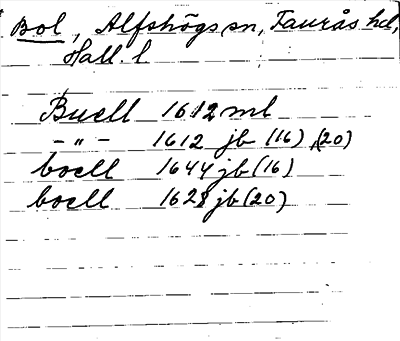 Bol, Alfshögs sn, Faurås hd,
Hall. l
Buell 1612 ml
-"- 1612 jb (16), (20)
boell 1644 jb (16)
boell 1628 jb (20)